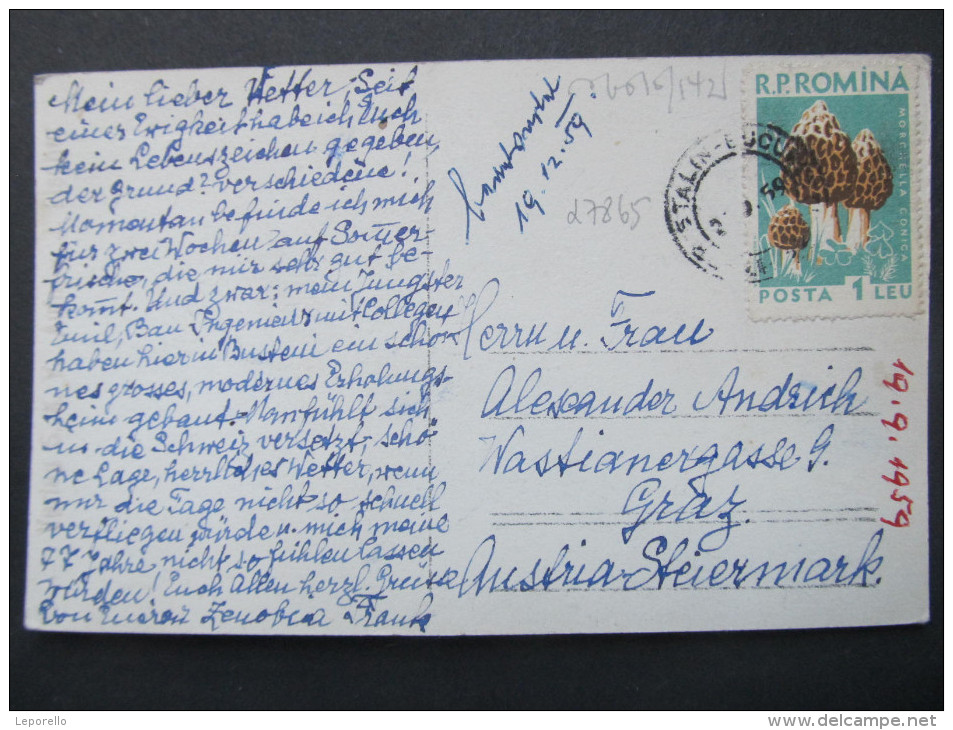 Mein lieber Vetter, Seit
einer Ewigkeit habe ich Euch
kein Lebenszeichen gegeben,
der Grund? verschiedene!
Momentan befinde ich mich
für zwei Wochen auf Somer-
frische, die mir sehr gut be-
komt. Und zwar: mein Jungster
Emil, Bau Ingenieur mit Collegen
haben hier in Busteni ein schö-
nes grosses, modernes Erholungs-
heim gebaut. Man fühlt sich
in die Schweiz versetzt, schö-
ne Lage, herrliches Wetter, wenn
nur die Tage nicht so schnell
verfliegen würden u. mich meine
77 Jahre nicht so fühlen lassen
würden! Euch Allen herzl. Grüsse
von Eurer Zenobia Frank
19.12.59.
27865
R.P.ROMÎNĂ
MORCHELLA CONICA
POSTA 1 LEU
STALIN-BUCU
59
Herrn u. Frau
Alexander Andrich
Wastianergasse 9.
Graz.
Austria-Steiermark.
19.9.1959
Leporello
www.delcampe.net